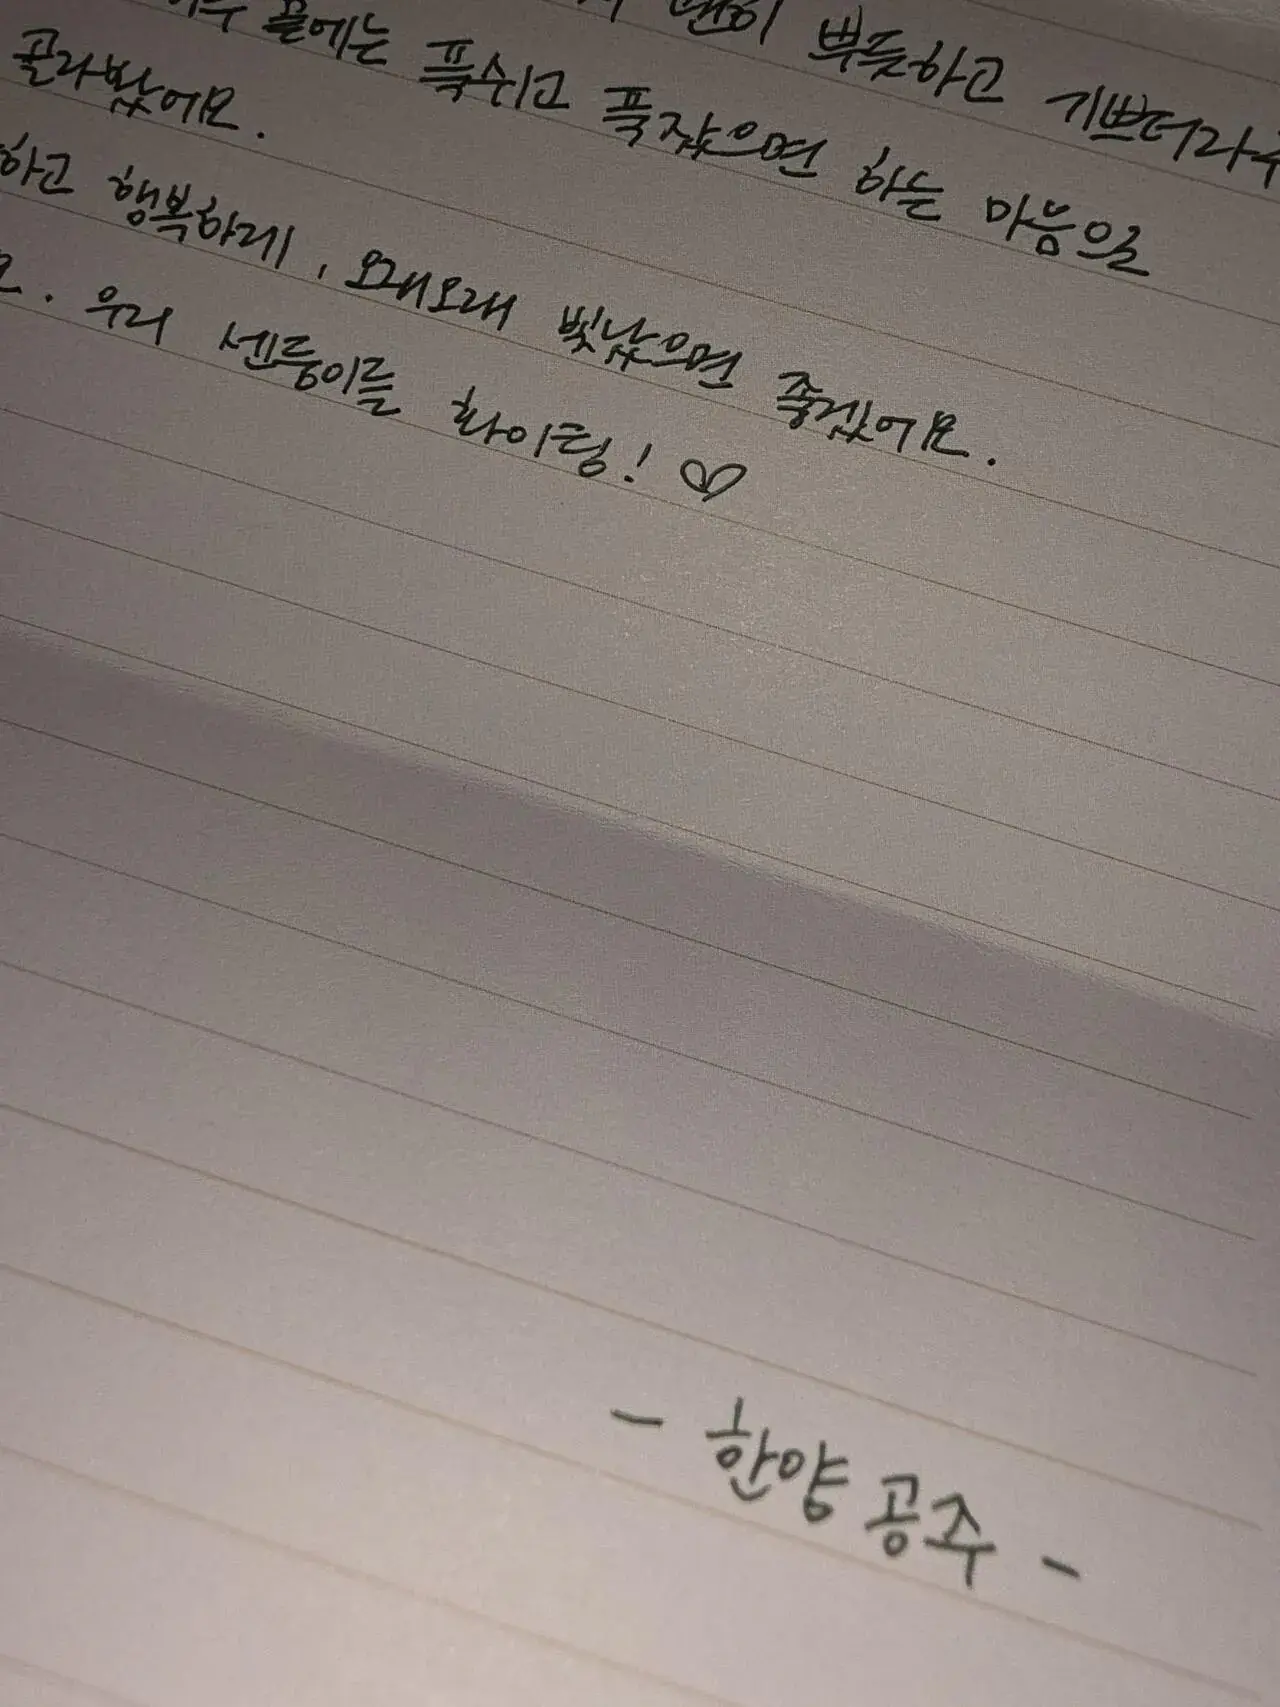 괜히 뿌듯하고 기쁘더라구
끝에는 푹쉬고 푹잤으면 하는 마음으로
골라봤어요.
하고 행복하게, 오래오래 빛났으면 좋겠어요.
. 우리 센둥이들 화이팅! ♡
- 한양 공주 -